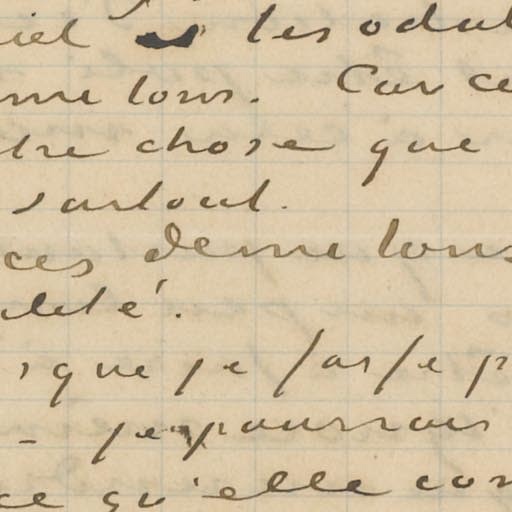 les odal
me tons. Car ce
tre chose que
surtout.
ces demi tons
alité.
que je fasse p
- je pourrais
ce qu'elle con